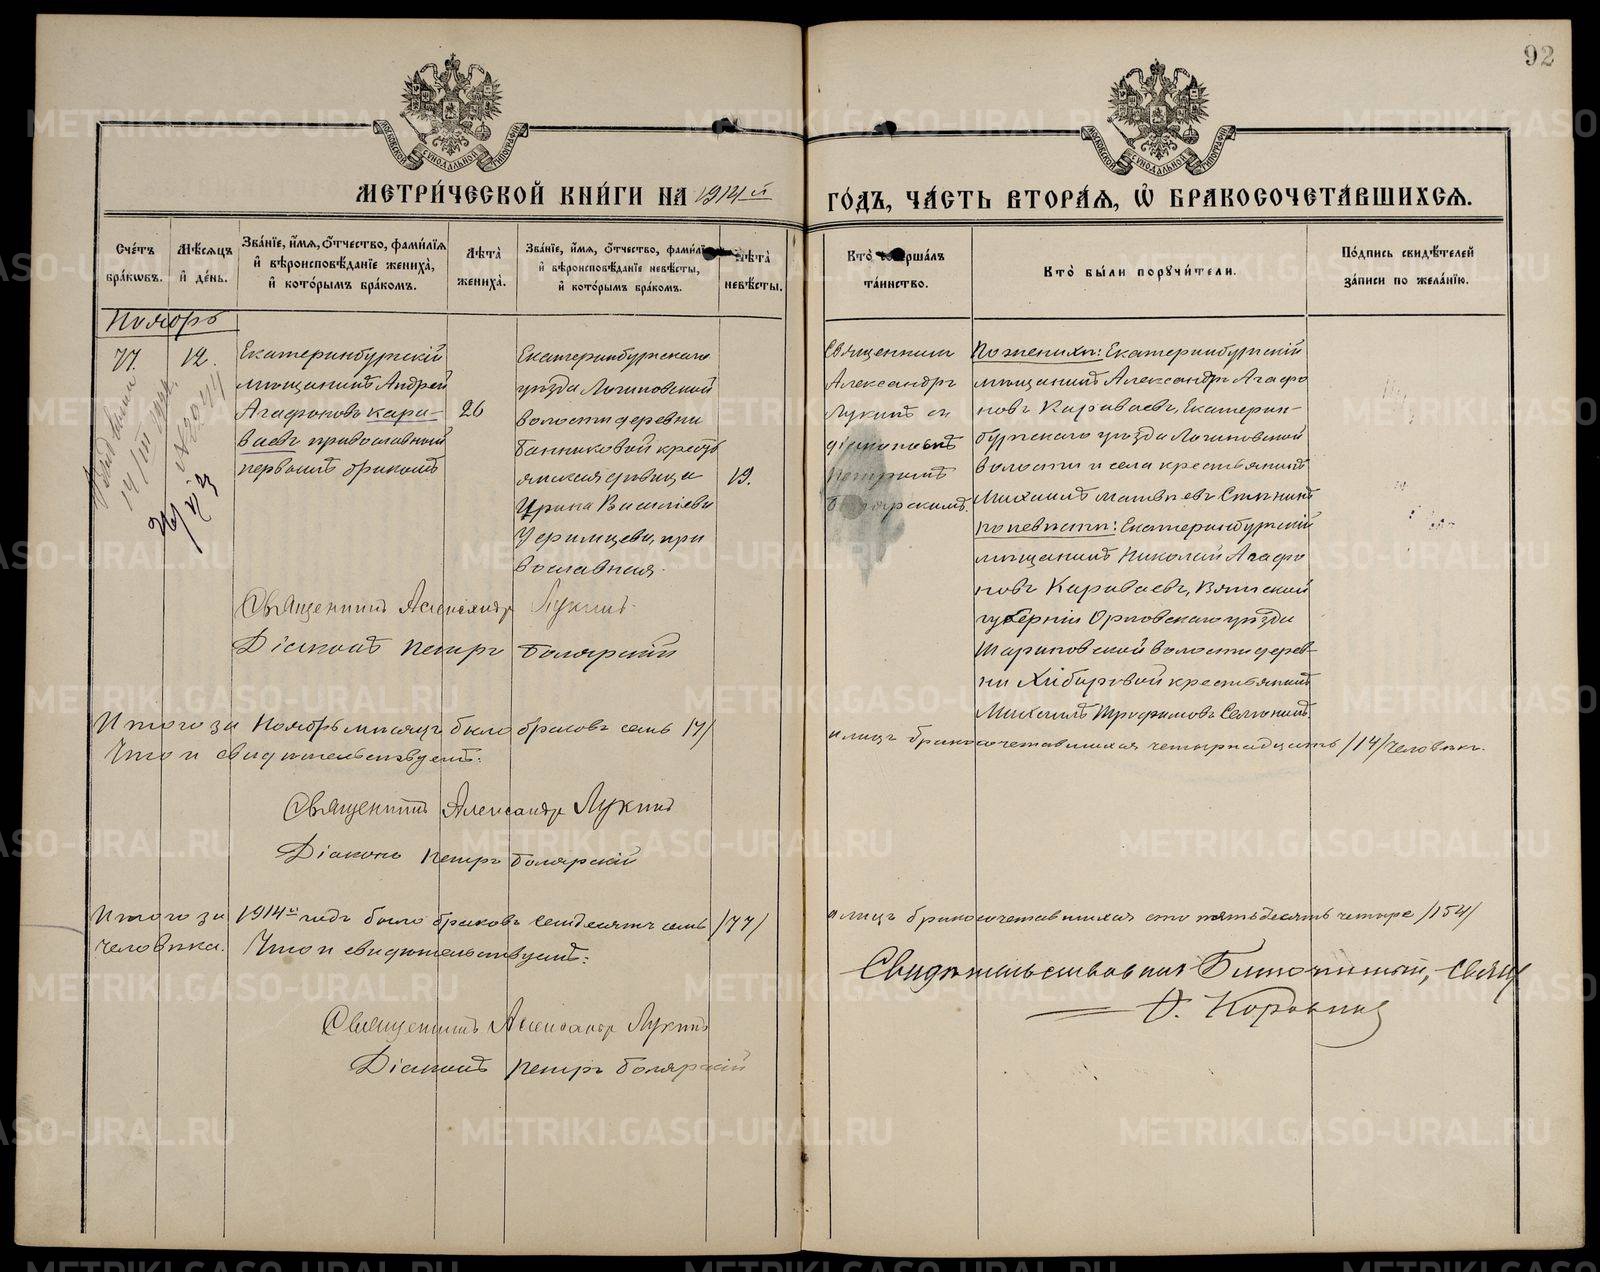 92
МОСКОВСКОЙ СѴНОДАЛЬНОЙ ТИПОГРАФІИ
МОСКОВСКОЙ СѴНОДАЛЬНОЙ ТИПОГРАФІИ
МЕТРИ́ЧЕСКОЙ КНИ́ГИ НА 1914 й
ГО́ДЪ, ЧА́СТЬ ВТОРА́Я, Ѽ БРАКОСОЧЕТА́ВШИХСЯ.
Сче́тъ
бра́кωвъ.
Мѣ́сяцъ
и҆ де́нь.
Зва́ніе, и҆́мя, ѻ҆́тчество, фами́лія
и҆ вѣроисповѣ́даніе жениха̀,
и҆ кото́рымъ бра́комъ.
Лѣ́та̀
жениха̀.
Зва́ніе, и҆́мя, ѻ҆́тчество, фами́лія
и҆ вѣроисповѣ́даніе невѣ́сты,
и҆ кото́рымъ бра́комъ.
Лѣ́та̀
невѣ́сты.
Кто̀ соверша́лъ
та́инство.
Кто̀ бы́ли порꙋчи́тели.
По́дпись свидѣ́телей
за́писи по жела́нію.
Ноябрь
77.
12.
Екатеринбургскій
мѣщанинъ Андрей
Агафоновъ Кара-
ваевъ православный
первымъ бракомъ
26
Екатеринбургскаго
уѣзда Логиновской
волости деревни
Банниковой кресть
янская дѣвица
Ирина Василіева
православная.
19.
Священник
Александръ
Лукинъ съ
діакономъ
Петромъ
Болярскимъ.
По женихѣ: Екатеринбургскій
мѣщанинъ Александръ Агафо
новъ Караваевъ, Екатерин-
бургскаго уѣзда Логиновской
волости и села крестьянинъ
Михаилъ Матвѣевъ
По невѣстѣ: Екатеринбургскій
мѣщанинъ Николай Агафо
новъ Караваевъ, Вятской
губерніи Орловскаго уѣзда
волости дерев-
ни крестьянинъ
Михаилъ Трофимовъ
Священникъ Александръ Лукинъ.
Діаконъ Петръ Болярскій
Итого за Ноябрь мѣсяцъ было браковъ семь /7/
а лицъ бракосочетавшихся четырнадцать /14/ человѣкъ.
Что и свидѣтельствуетъ:
Священникъ Александръ Лукинъ
Діаконъ Петръ Болярскій
Итого за 1914 й годъ было браковъ семдесятъ семь /77/
а лицъ бракосочетавшихся сто пятьдесятъ четыре /154/
человѣка. Что и свидѣтельствуетъ:
Священникъ Александръ Лукинъ
Діаконъ Петръ Болярскій
Свидѣтельствовалъ Благочинный, Свящ
METRIKI.GASO-URAL.RU